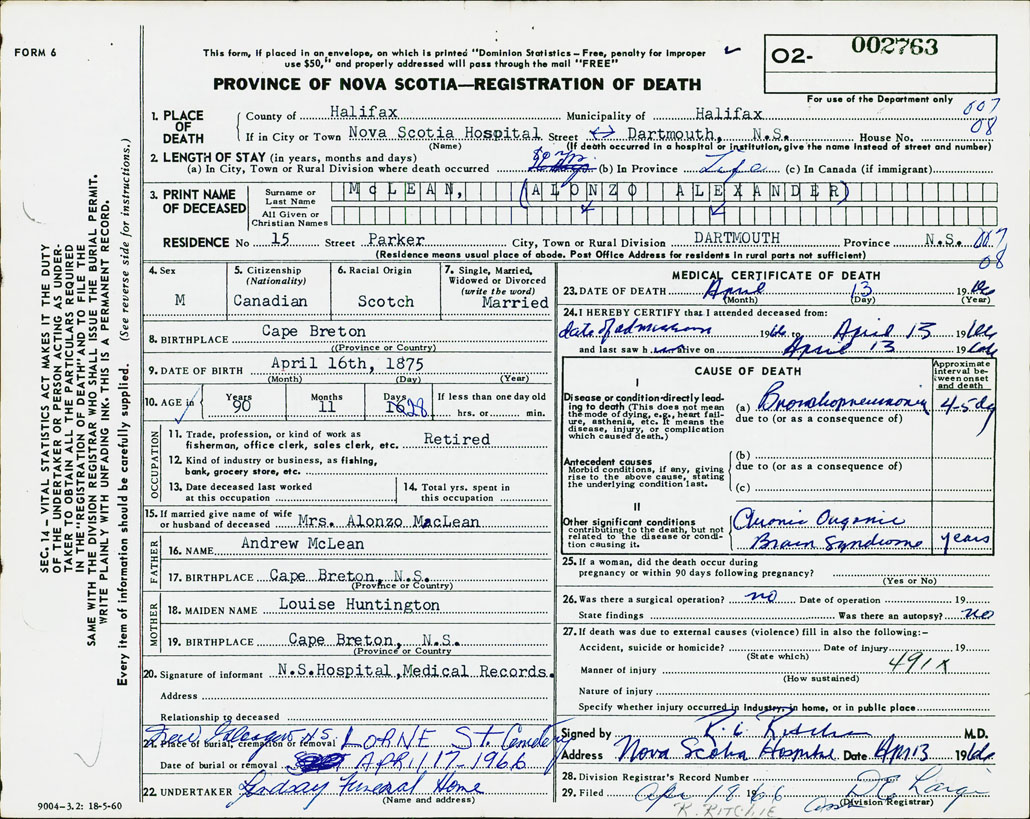 FORM 6
This form, if placed in an envelope, on which is printed "Dominion Statistics – Free, penalty for improper
use $50," and properly addressed will pass through the mail "FREE"
O2- 002763
PROVINCE OF NOVA SCOTIA—REGISTRATION OF DEATH
For use of the Department only
1. PLACE OF DEATH
County of Halifax Municipality of Halifax 007
If in City or Town Nova Scotia Hospital Street Dartmouth, N.S. House No. 08
(Name) (If death occurred in a hospital or institution, give the name instead of street and number)
2. LENGTH OF STAY (in years, months and days)
(a) In City, Town or Rural Division where death occurred (b) In Province Life (c) In Canada (if immigrant)
3. PRINT NAME OF DECEASED
Surname or Last Name McLEAN, (ALONZO ALEXANDER)
All Given or Christian Names
RESIDENCE No 15 Street Parker City, Town or Rural Division DARTMOUTH Province N.S. 007
(Residence means usual place of abode. Post Office Address for residents in rural parts not sufficient) 08
4. Sex M
5. Citizenship (Nationality) Canadian
6. Racial Origin Scotch
7. Single, Married, Widowed or Divorced (write the word) Married
8. BIRTHPLACE Cape Breton
((Province or Country)
9. DATE OF BIRTH April 16th, 1875
(Month) (Day) (Year)
10. AGE in Years 90 Months 11 Days 28 If less than one day old hrs. or min.
OCCUPATION
11. Trade, profession, or kind of work as fisherman, office clerk, sales clerk, etc. Retired
12. Kind of industry or business, as fishing, bank, grocery store, etc.
13. Date deceased last worked at this occupation
14. Total yrs. spent in this occupation
15. If married give name of wife or husband of deceased Mrs. Alonzo MacLean
FATHER
16. NAME Andrew McLean
17. BIRTHPLACE Cape Breton, N.S.
(Province or Country)
MOTHER
18. MAIDEN NAME Louise Huntington
19. BIRTHPLACE Cape Breton, N.S.
(Province or Country
20. Signature of informant N.S.Hospital,Medical Records.
Address
Relationship to deceased
New Glasgow N.S.
21. Place of burial, cremation or removal LORNE St. Cemetery
Date of burial or removal APRIL 17-1966
22. UNDERTAKER Lindsay Funeral Home
(Name and address)
9004–3.2: 18-5-60
MEDICAL CERTIFICATE OF DEATH
23. DATE OF DEATH April 13 1966
(Month) (Day) (Year)
24. I HEREBY CERTIFY that I attended deceased from:
date of admission 1966 to April 13 1966
and last saw h im alive on April 13 1966
CAUSE OF DEATH
Approximate interval between onset and death
I
Disease or condition-directly leading to death (This does not mean the mode of dying, e.g., heart failure, asthenia, etc. It means the disease, injury, or complication which caused death.)
(a) Bronchopneumonia 4-5 dy
due to (or as a consequence of)
Antecedent causes
Morbid conditions, if any, giving rise to the above cause, stating the underlying condition last.
(b)
due to (or as a consequence of)
(c)
II
Other significant conditions contributing to the death, but not related to the disease or condition causing it.
Chronic Organic
Brain Syndrome years
25. If a woman, did the death occur during pregnancy or within 90 days following pregnancy?
(Yes or No)
26. Was there a surgical operation? no Date of operation 19
State findings Was there an autopsy? no
27. If death was due to external causes (violence) fill in also the following:–
Accident, suicide or homicide? Date of injury 19
(State which)
Manner of injury 491x
(How sustained)
Nature of injury
Specify whether injury occurred in industry, in home, or in public place
Signed by R. C. Ritchie M.D.
Address Nova Scotia Hospital Date Apr 13 1966
28. Division Registrar's Record Number
29. Filed Apr 18 1966
(Division Registrar)
R. RITCHIE
SEC. 14 – VITAL STATISTICS ACT MAKES IT THE DUTY
OF THE UNDERTAKER OR PERSON ACTING AS UNDER-
TAKER TO OBTAIN ALL THE PARTICULARS REQUIRED
IN THE "REGISTRATION OF DEATH" AND TO FILE THE
SAME WITH THE DIVISION REGISTRAR WHO SHALL ISSUE THE BURIAL PERMIT.
WRITE PLAINLY WITH UNFADING INK. THIS IS A PERMANENT RECORD.
Every item of information should be carefully supplied. (See reverse side for instructions.)